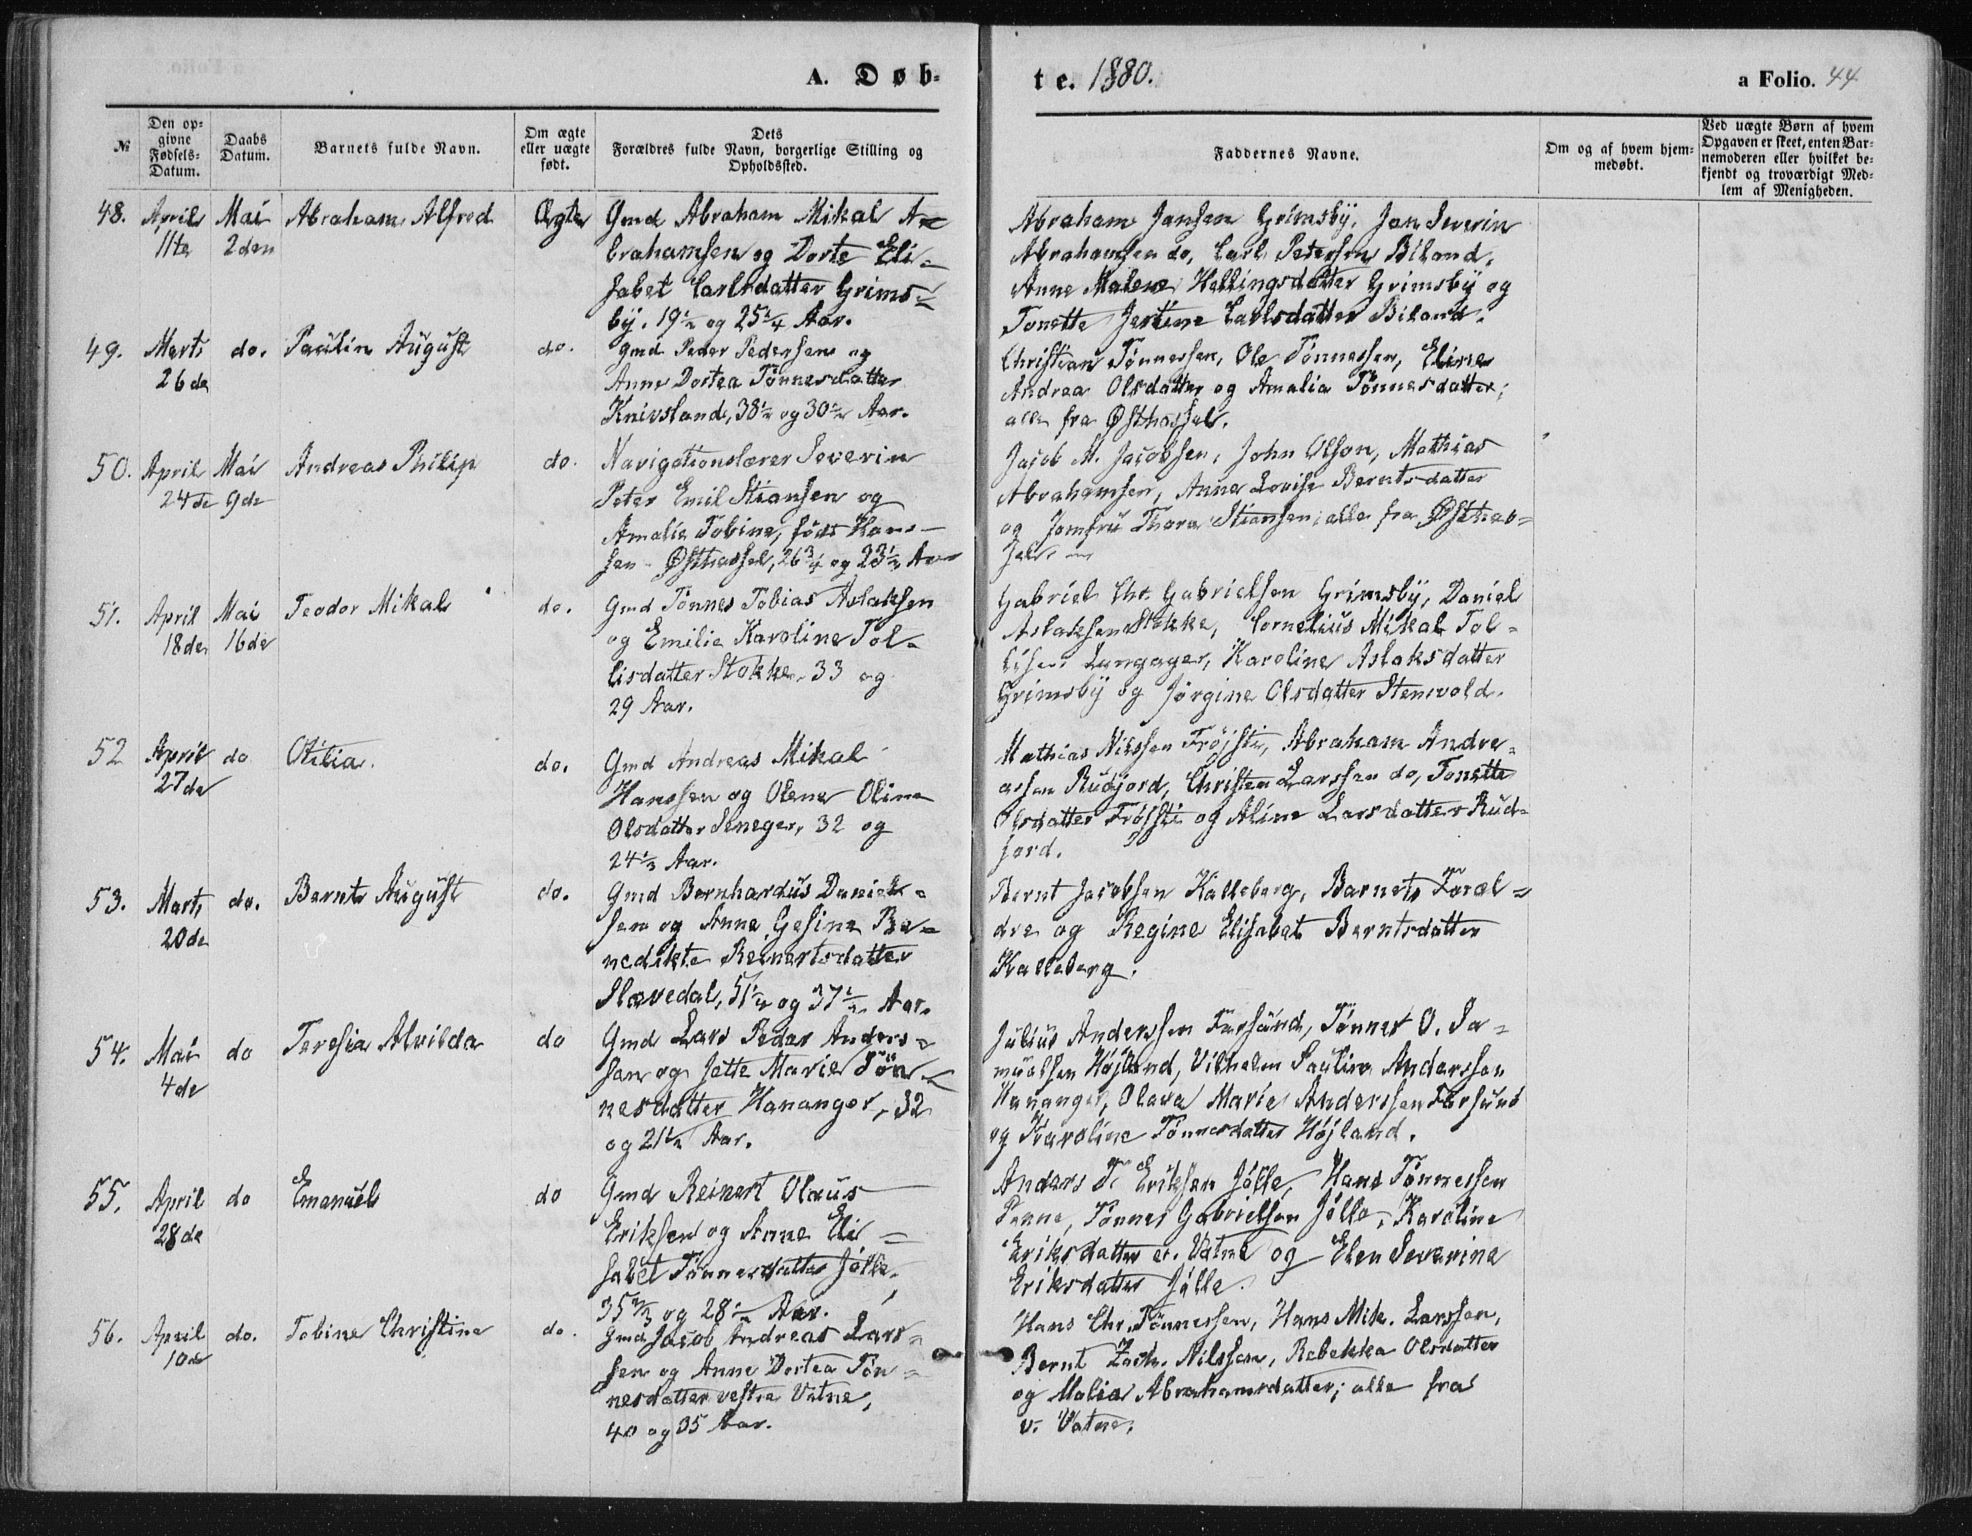 A. Døb-
te. 1880.
a Folio. 44
№
Den op-
givne
Fødsels-
Datum.
Daabs
Datum.
Barnets fulde Navn.
Om ægte
eller uægte
født.
Dets
Forældres fulde Navn, borgerlige Stilling og
Opholdssted.
Faddernes Navne.
Om og af hvem hjem-
medøbt.
Ved uægte Børn af hvem
Opgaven er skeet, enten Bar-
nemoderen eller hvilket be-
kjendt og troværdigt Med-
lem af Menigheden.
48. April Mai Abraham Alfred Ægte Gmd Abraham Mikal A-
11te 2den brahamsen og Dorte Eli-
sabet Carlsdatter Grims-
by. 19½ og 25¼ Aar.
Abraham Jansen Grimsby, Jan Severin
Abrahamsen do, Carl Petersen Biland,
Anne Malene Hellingsdatter Grimsby og
Tonette Jestine Carlsdatter Biland.
49. Marts do. Paulin August do. Gmd Peder Pedersen og
26de Anne Dortea Tønnesdatter
Knivsland, 38½ og 30½ Aar.
Christian Tønnessen, Ole Tønnessen, Eline
Andrea Olsdatter og Amalia Tønnesdatter;
alle fra Østhassel.
50. April Mai Andreas Philip do. Navigationslærer Severin
24de 9de Peter Emil Stiansen og
Amalie Tobine, født Han-
sen - Østhassel, 26¾ og 23½ Aar
Jacob M. Jacobsen, John Olson, Mathias
Abrahamsen, Anne Lovise Berntsdatter
og Jomfru Thora Stiansen; alle fra Østhas-
sel.
51. April Mai Teodor Mikal do. Gmd Tønnes Tobias Aslaksen
18de 16de og Emilie Karoline Tol-
lisdatter Stokke, 33 og
29 Aar.
Gabriel Chr. Gabrielsen Grimsby, Daniel
Aslaksen Stokke, Cornelius Mikal Tol-
lisen Langager, Karoline Aslaksdatter
Grimsby og Jørgine Olsdatter Stensvold.
52 April do Otilia. do. Gmd Andreas Mikal
27de Hanssen og Olene Oline
Olsdatter 32 og
24½ Aar.
Mathias Nilssen Abraham Andre-
assen Rudjord, Christen Larssen do, Tonette
Olsdatter og Aline Larsdatter Rud-
jord.
53. Marts do. Bernt August do. Gmd Bernhardus Daniel-
20de sen og Anne Gesine Be-
nedikte Reinertsdatter
Slævedal, 51½ og 37½ Aar.
Bernt Jacobsen Kalleberg, Barnets Foræl-
dre og Regine Elisabet Berntsdatter
Kalleberg.
54. Mai do Teresia Alvilda do Gmd Lars Peder Anders-
4de sen og Jette Marie Tøn-
nesdatter Hananger, 32
og 21½ Aar.
Julius Anderssen Farsund, Tønnes O. Sa-
muelsen Højland, Vilhelm Paulin Anderssen
Hananger, Olava Marie Anderssen Farsund
og Karoline Tønnesdatter Højland.
55. April do Emanuel do Gmd Reinert Olaus
28de Eriksen og Anne Eli-
sabet Tønnesdatter Jølle,
35⅔ og 28½ Aar.
Anders T. Eriksen Jølle, Hans Tønnessen
Penne, Tønnes Gabrielsen Jølle, Karoline
Eriksdatter Vatne og Elen Severine
Eriksdatter Jølle.
56. April do. Tobine Christine do. Gmd Jacob Andreas Lars-
10de sen og Anne Dortea Tøn-
nesdatter vestre Vatne,
40 og 35 Aar.
Hans Chr. Tønnessen, Hans Mik. Larssen,
Bernt Zach. Nilssen, Rebekka Olsdatter
og Malia Abrahamsdatter; alle fra
v. Vatne.